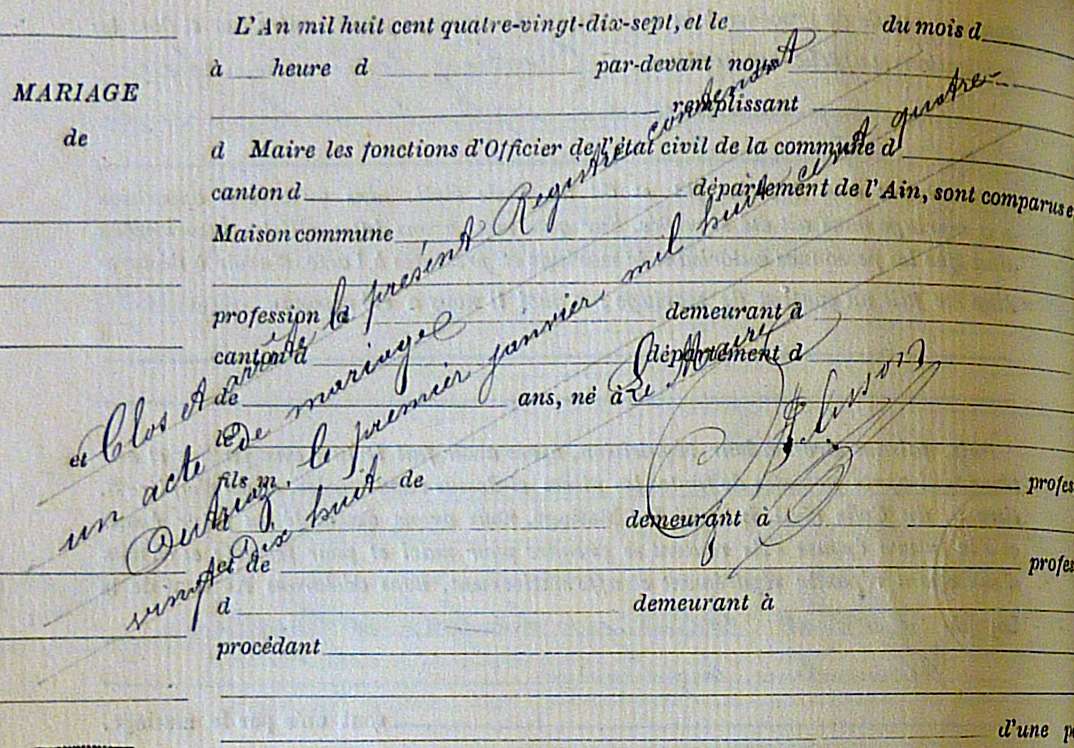 L'An mil huit cent quatre-vingt-dix-sept, et le du mois d
à heure d par-devant nous
MARIAGE
remplissant
de
d Maire les fonctions d'Officier de l'état civil de la commune d
canton d département de l'Ain, sont comparus e
Maison commune
profession d demeurant à
canton d département d
de ans, né à
et
le
fils m de profes
d demeurant à
et de profes
d demeurant à
procédant
d'une p
Clos et arrêté le présent Registre contenant
un acte de mariage
le premier janvier mil huit cent quatre-
vingt dix huit
Le Maire